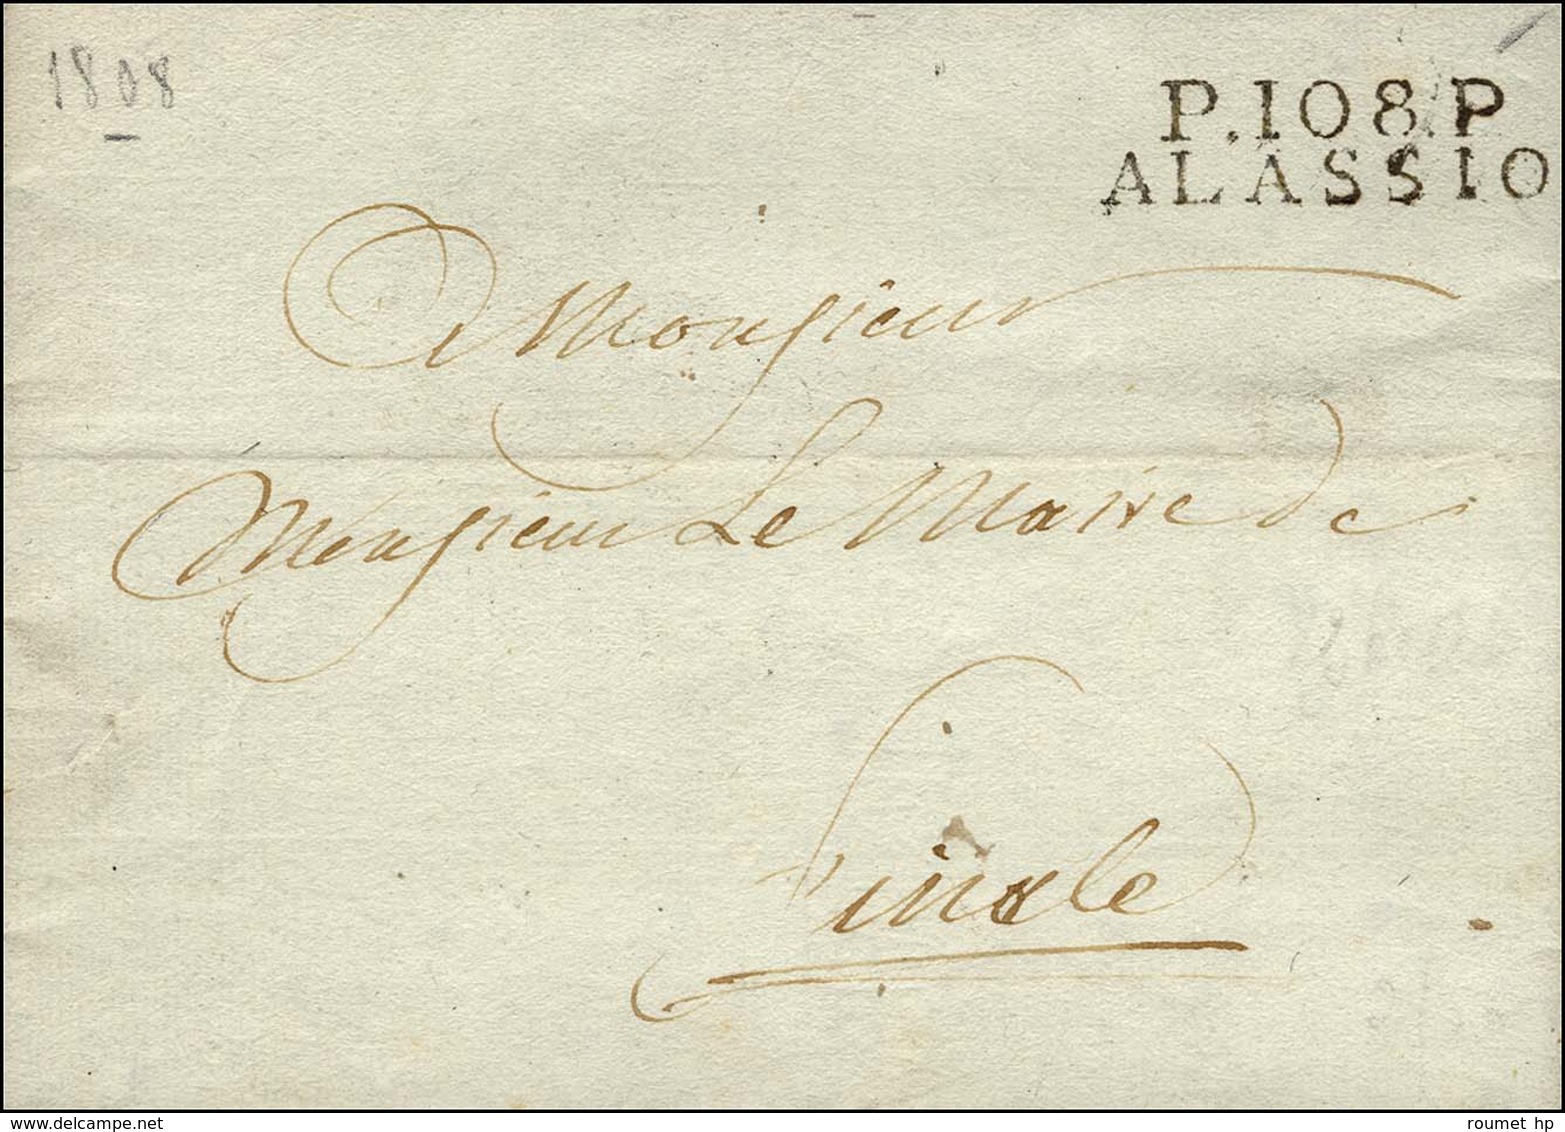 1808
P.108.P
ALASSIO
Monsieur
Monsieur Le Maire de
Finale
www.delcampe.net
roumet hp